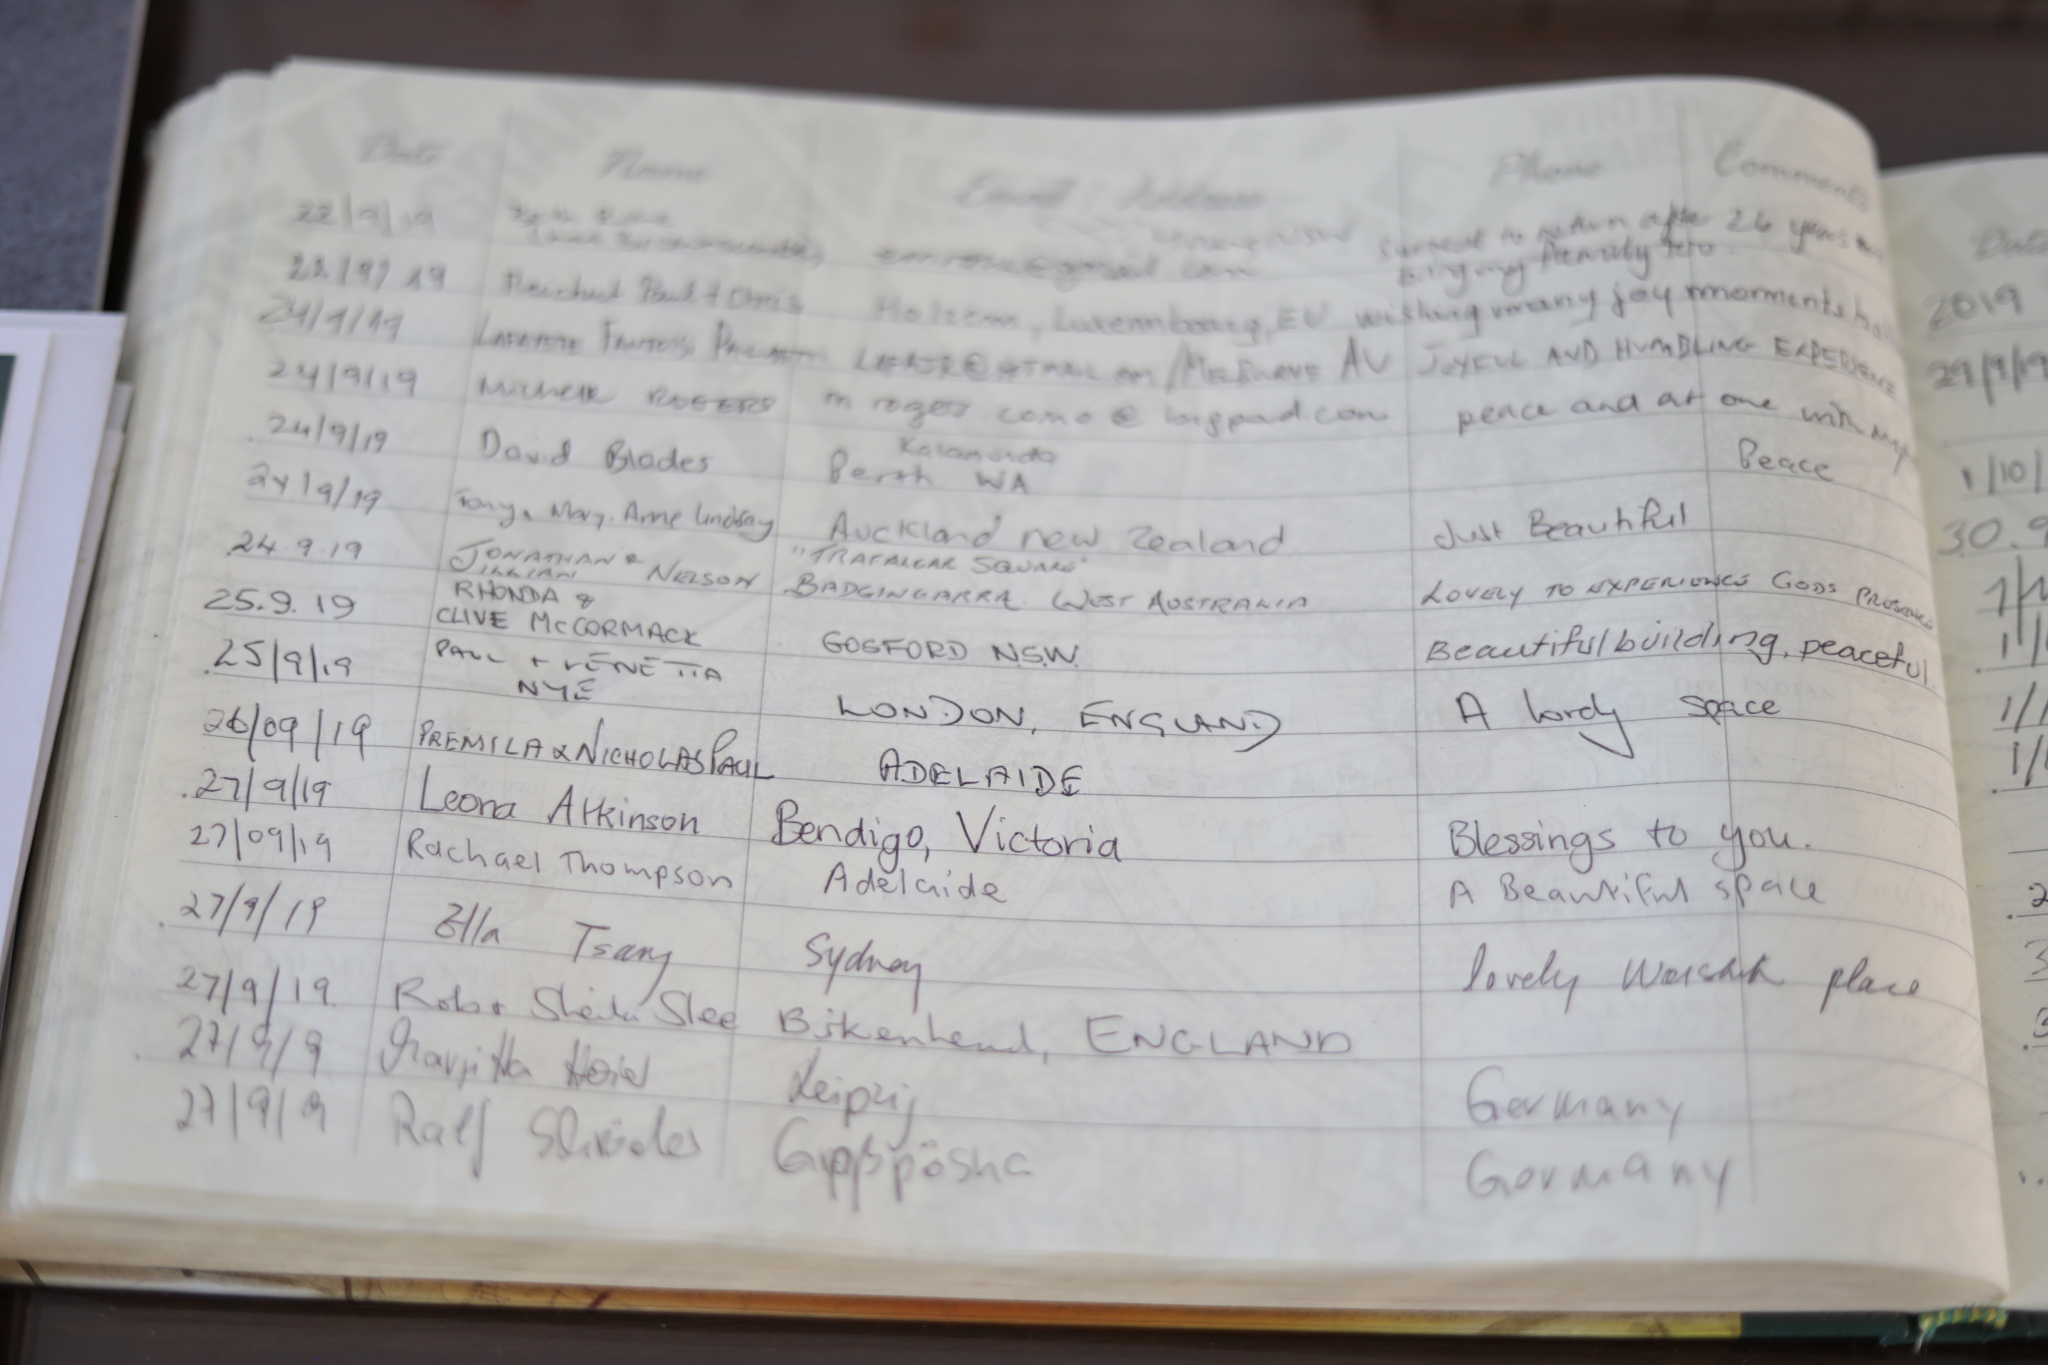 Date Name Email / Address Phone Comments
22/9/19 return after 26 years
my family
22/9/19 Paul + Chris Holzem, Luxembourg, EU wishing many joy moments
24/9/19 AU JOYFULL AND HUMBLING EXPERIENCE
24/9/19 Michele ROGERS peace and at one with
24/9/19 David Blades Kalamunda
Perth WA Peace
24/9/19 Tony & Mary-Anne Lindsay Auckland new Zealand Just Beautiful
24.9.19 JONATHAN &
JILLIAN NELSON "TRAFALGAR SQUARE"
BADGINGARRA. WEST AUSTRALIA LOVELY TO EXPERIENCE GODS PRESENCE
25.9.19 RHONDA &
CLIVE McCORMACK GOSFORD NSW. Beautiful building, peaceful.
25/9/19 PAUL + VENETIA
NYE LONDON, ENGLAND A lovely space
26/09/19 PREMILA & NICHOLAS PAUL ADELAIDE
27/9/19 Leona Atkinson Bendigo, Victoria Blessings to you.
27/09/19 Rachael Thompson Adelaide A Beautiful space
27/9/19 Ella Tsang Sydney lovely Worship place
27/9/19. Rob & Sheila Slee Birkenhead, ENGLAND
27/9/9 Leipzig Germany
27/9/9 Ralf Germany
Date
2019
29/9/19
1/10/
30.9